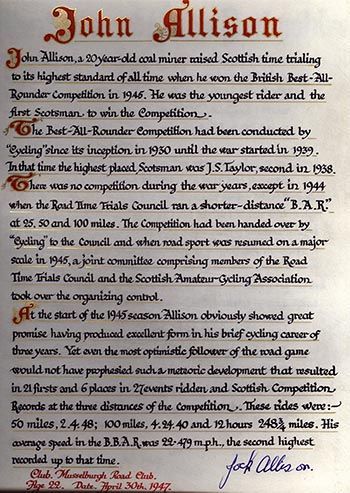 John Allison
John Allison, a 20 year-old coal miner raised Scottish time trialing
to its highest standard of all time when he won the British Best-All-
Rounder Competition in 1946. He was the youngest rider and the
first Scotsman to win the Competition.
The Best-All-Rounder Competition had been conducted by
"Cycling" since its inception in 1930 until the war started in 1939.
In that time the highest placed Scotsman was J.S. Taylor, second in 1938.
There was no competition during the war years, except in 1944
when the Road Time Trials Council ran a shorter-distance "B.A.R."
at 25, 50 and 100 miles. The Competition had been handed over by
"Cycling" to the Council and when road sport was resumed on a major
scale in 1945, a joint committee comprising members of the Road
Time Trials Council and the Scottish Amateur Cycling Association
took over the organizing control.
At the start of the 1945 season Allison obviously showed great
promise having produced excellent form in his brief cycling career of
three years. Yet even the most optimistic follower of the road game
would not have prophesied such a meteoric development that resulted
in 21 firsts and 6 places in 27 events ridden and Scottish Competition
Records at the three distances of the Competition. These rides were:-
50 miles, 2.4.48; 100 miles, 4.24.40 and 12 hours 248¾ miles. His
average speed in the B.B.A.R. was 22.479 m.p.h., the second highest
recorded up to that time.
Jock Allison.
Club. Musselburgh Road Club.
Age 22. Date. April 30th, 1947.